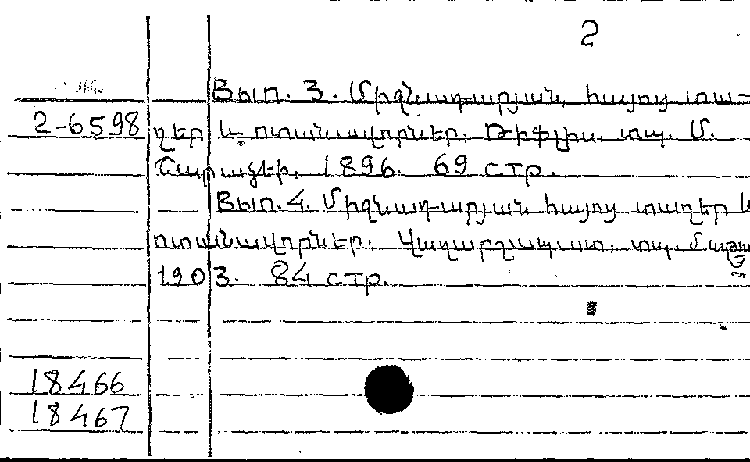 2
Вып. 3. Միջնադարյան հայոց տա-
2-6598 ղեր և ոտանավորներ. Թիֆլիս. տպ. Մ.
Շարաձեի, 1896. 69 стр.
Вып. 4. Միջնադարյան հայոց տաղեր և
ոտանավորներ. Վաղարշապատ. տպ. Մայր
1903. 84 стр.
18466
18467